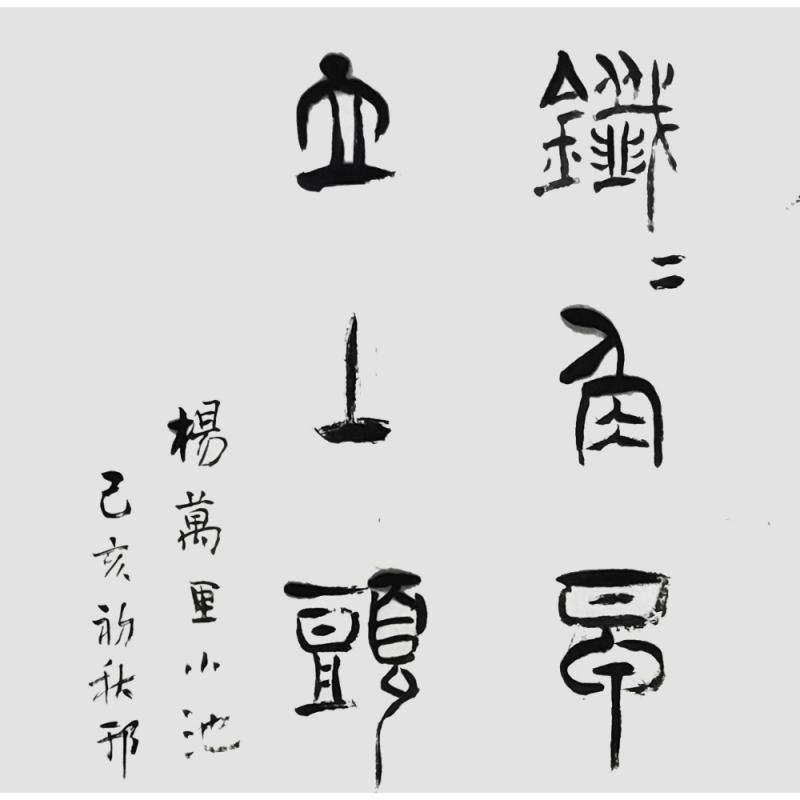 鑯〻角早
立上頭
楊萬里小池
己亥初秋邢